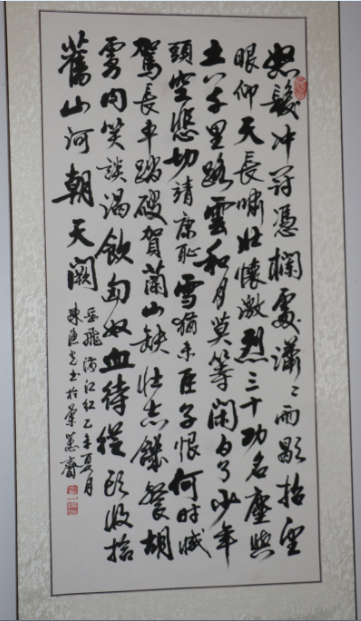 怒髮冲冠憑欄處瀟〻雨歇抬望
眼仰天長嘯壯懷激烈三十功名塵與
土八千里路雲和月莫等閑白了少年
頭空悲切靖康恥雪猶未臣子恨何時滅
駕長車踏破賀蘭山缺壯志饑餐胡
虜肉笑談渴飲匈奴血待從頭收拾
舊山河朝天闕
岳飛滿江紅乙未夏月
陳